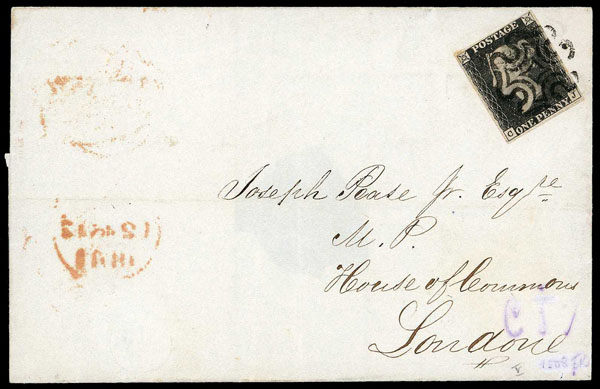 POSTAGE
C J
ONE PENNY
Joseph Pease Jr. Esqre
M. P.
House of Commons
London
CJ